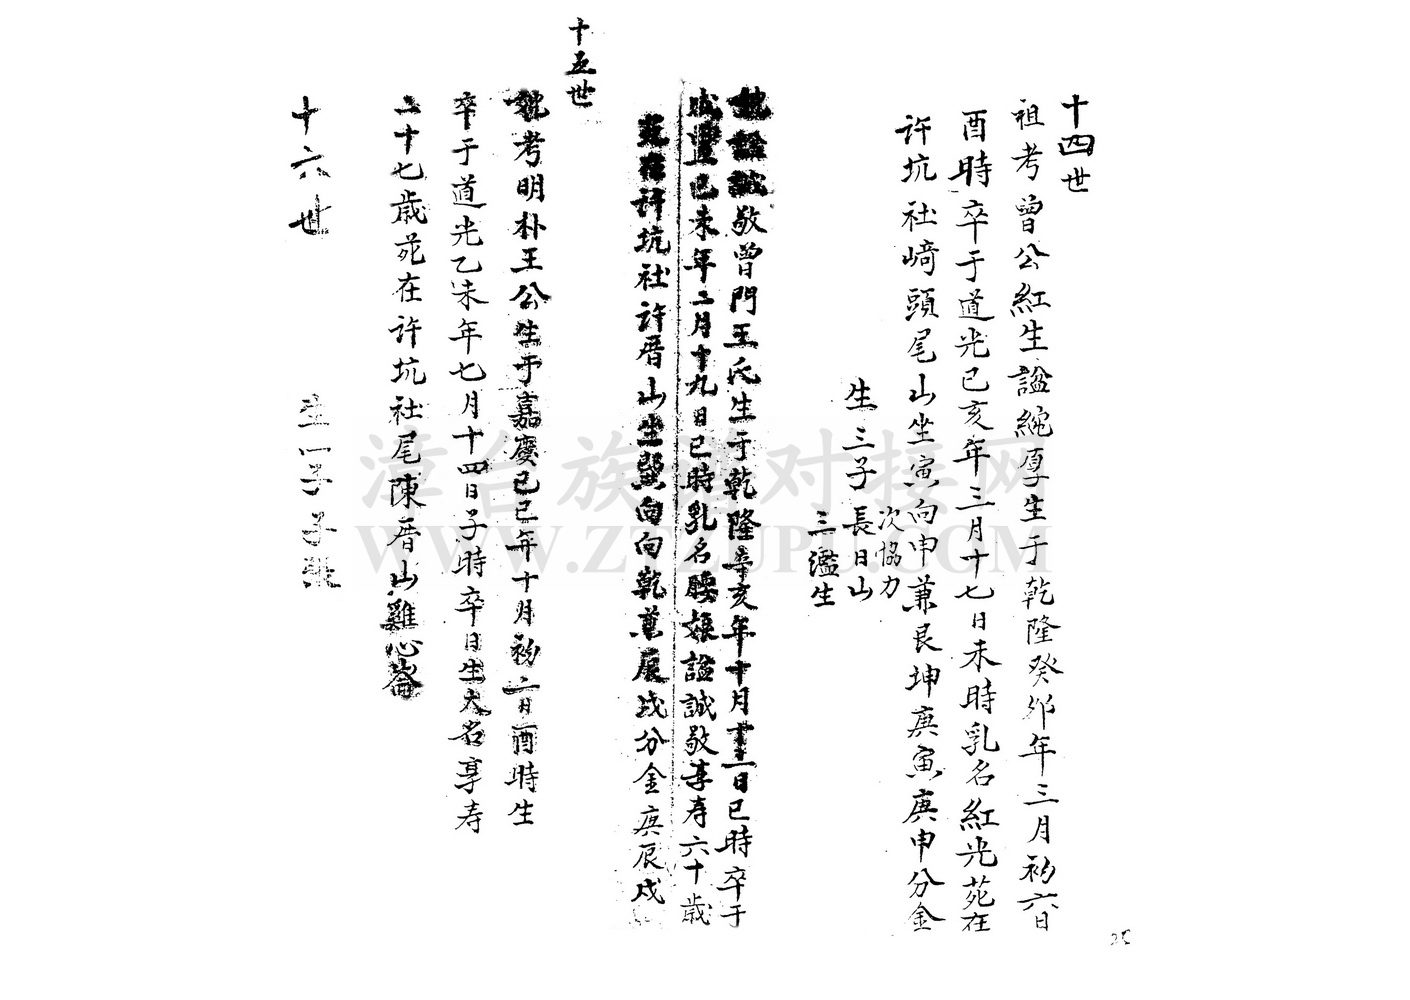 十四世
祖考曾公紅生諡純厚生于乾隆癸卯年三月初六日
酉時卒于道光己亥年三月十七日未時乳名紅光苑在
許坑社崎頭尾山坐寅向申兼艮坤庚寅庚申分金
生三子長日山
次協力
三濫生
妣諡誠敬曾門王氏生于乾隆辛亥年十月十二日巳時卒于
咸豐己未年二月十九日巳時乳名腰娘諡誠敬享寿六十歲
苑在許坑社許厝山坐巽向向乾兼辰戌分金庚辰戌
十五世
妣考明朴王公生于嘉慶己巳年十月初二日酉時生
卒于道光乙未年七月十四日子時卒日生大名享寿
二十七歲苑在許坑社尾陳厝山雞心崙
十六世
生一子子
漳台族谱对接网
WWW.ZTZUPU.COM
25